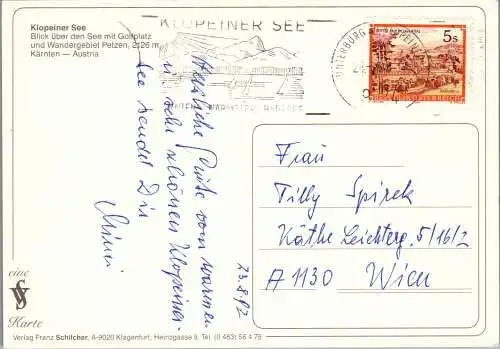 Klopeiner See
Blick über den See mit Golfplatz
und Wandergebiet Petzen, 2126 m
Kärnten — Austria
KLOPEINER SEE
5s
Herzliche Grüße vom warmen
u. sehr schönen Klopeiner-
see sendet Dir
23.8.92
Frau
Tilly Spirek
Käthe Leichterg. 5/16/2
A 1130 Wien
eine
VS
Karte
Verlag Franz Schilcher, A-9020 Klagenfurt, Heinzgasse 9, Tel. (0 463) 56 4 75